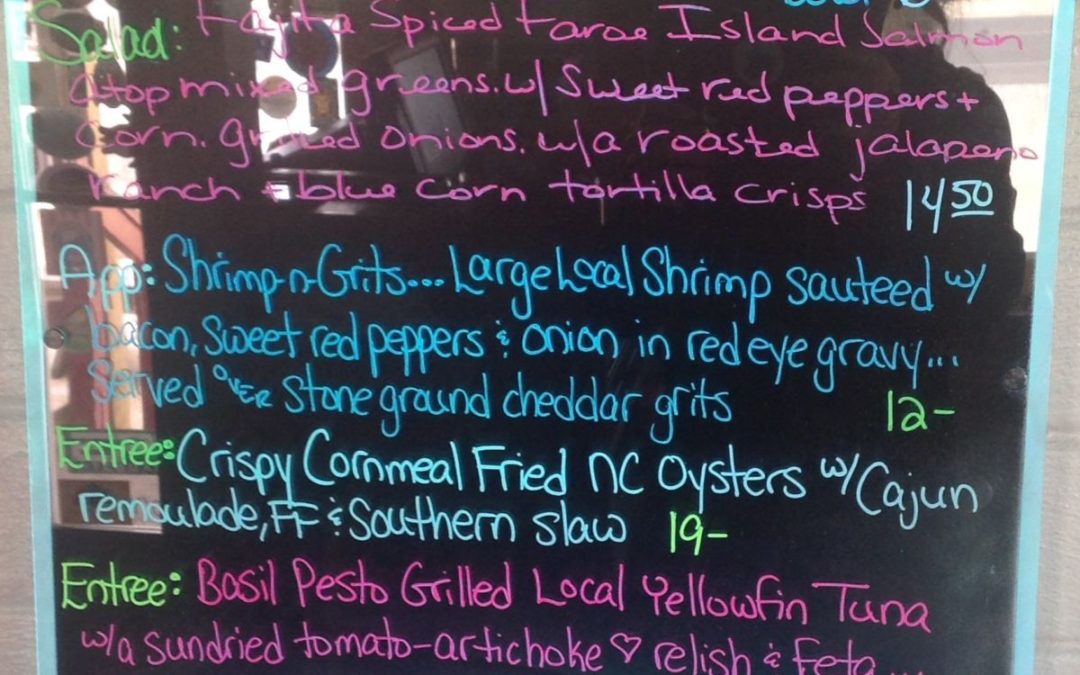 Salad: Fajita Spiced Faroe Island Salmon
atop mixed greens. w/ Sweet red peppers +
Corn. grilled onions. w/a roasted jalapeno
ranch + blue corn tortilla crisps 14 50
App: Shrimp-n-Grits... Large Local Shrimp sauteed w/
bacon, sweet red peppers & onion in red eye gravy...
Served over stone ground cheddar grits 12-
Entree: Crispy Cornmeal Fried NC Oysters w/ Cajun
remoulade, FF & Southern slaw 19-
Entree: Basil Pesto Grilled Local Yellowfin Tuna
w/a sundried tomato-artichoke ♡ relish & feta...